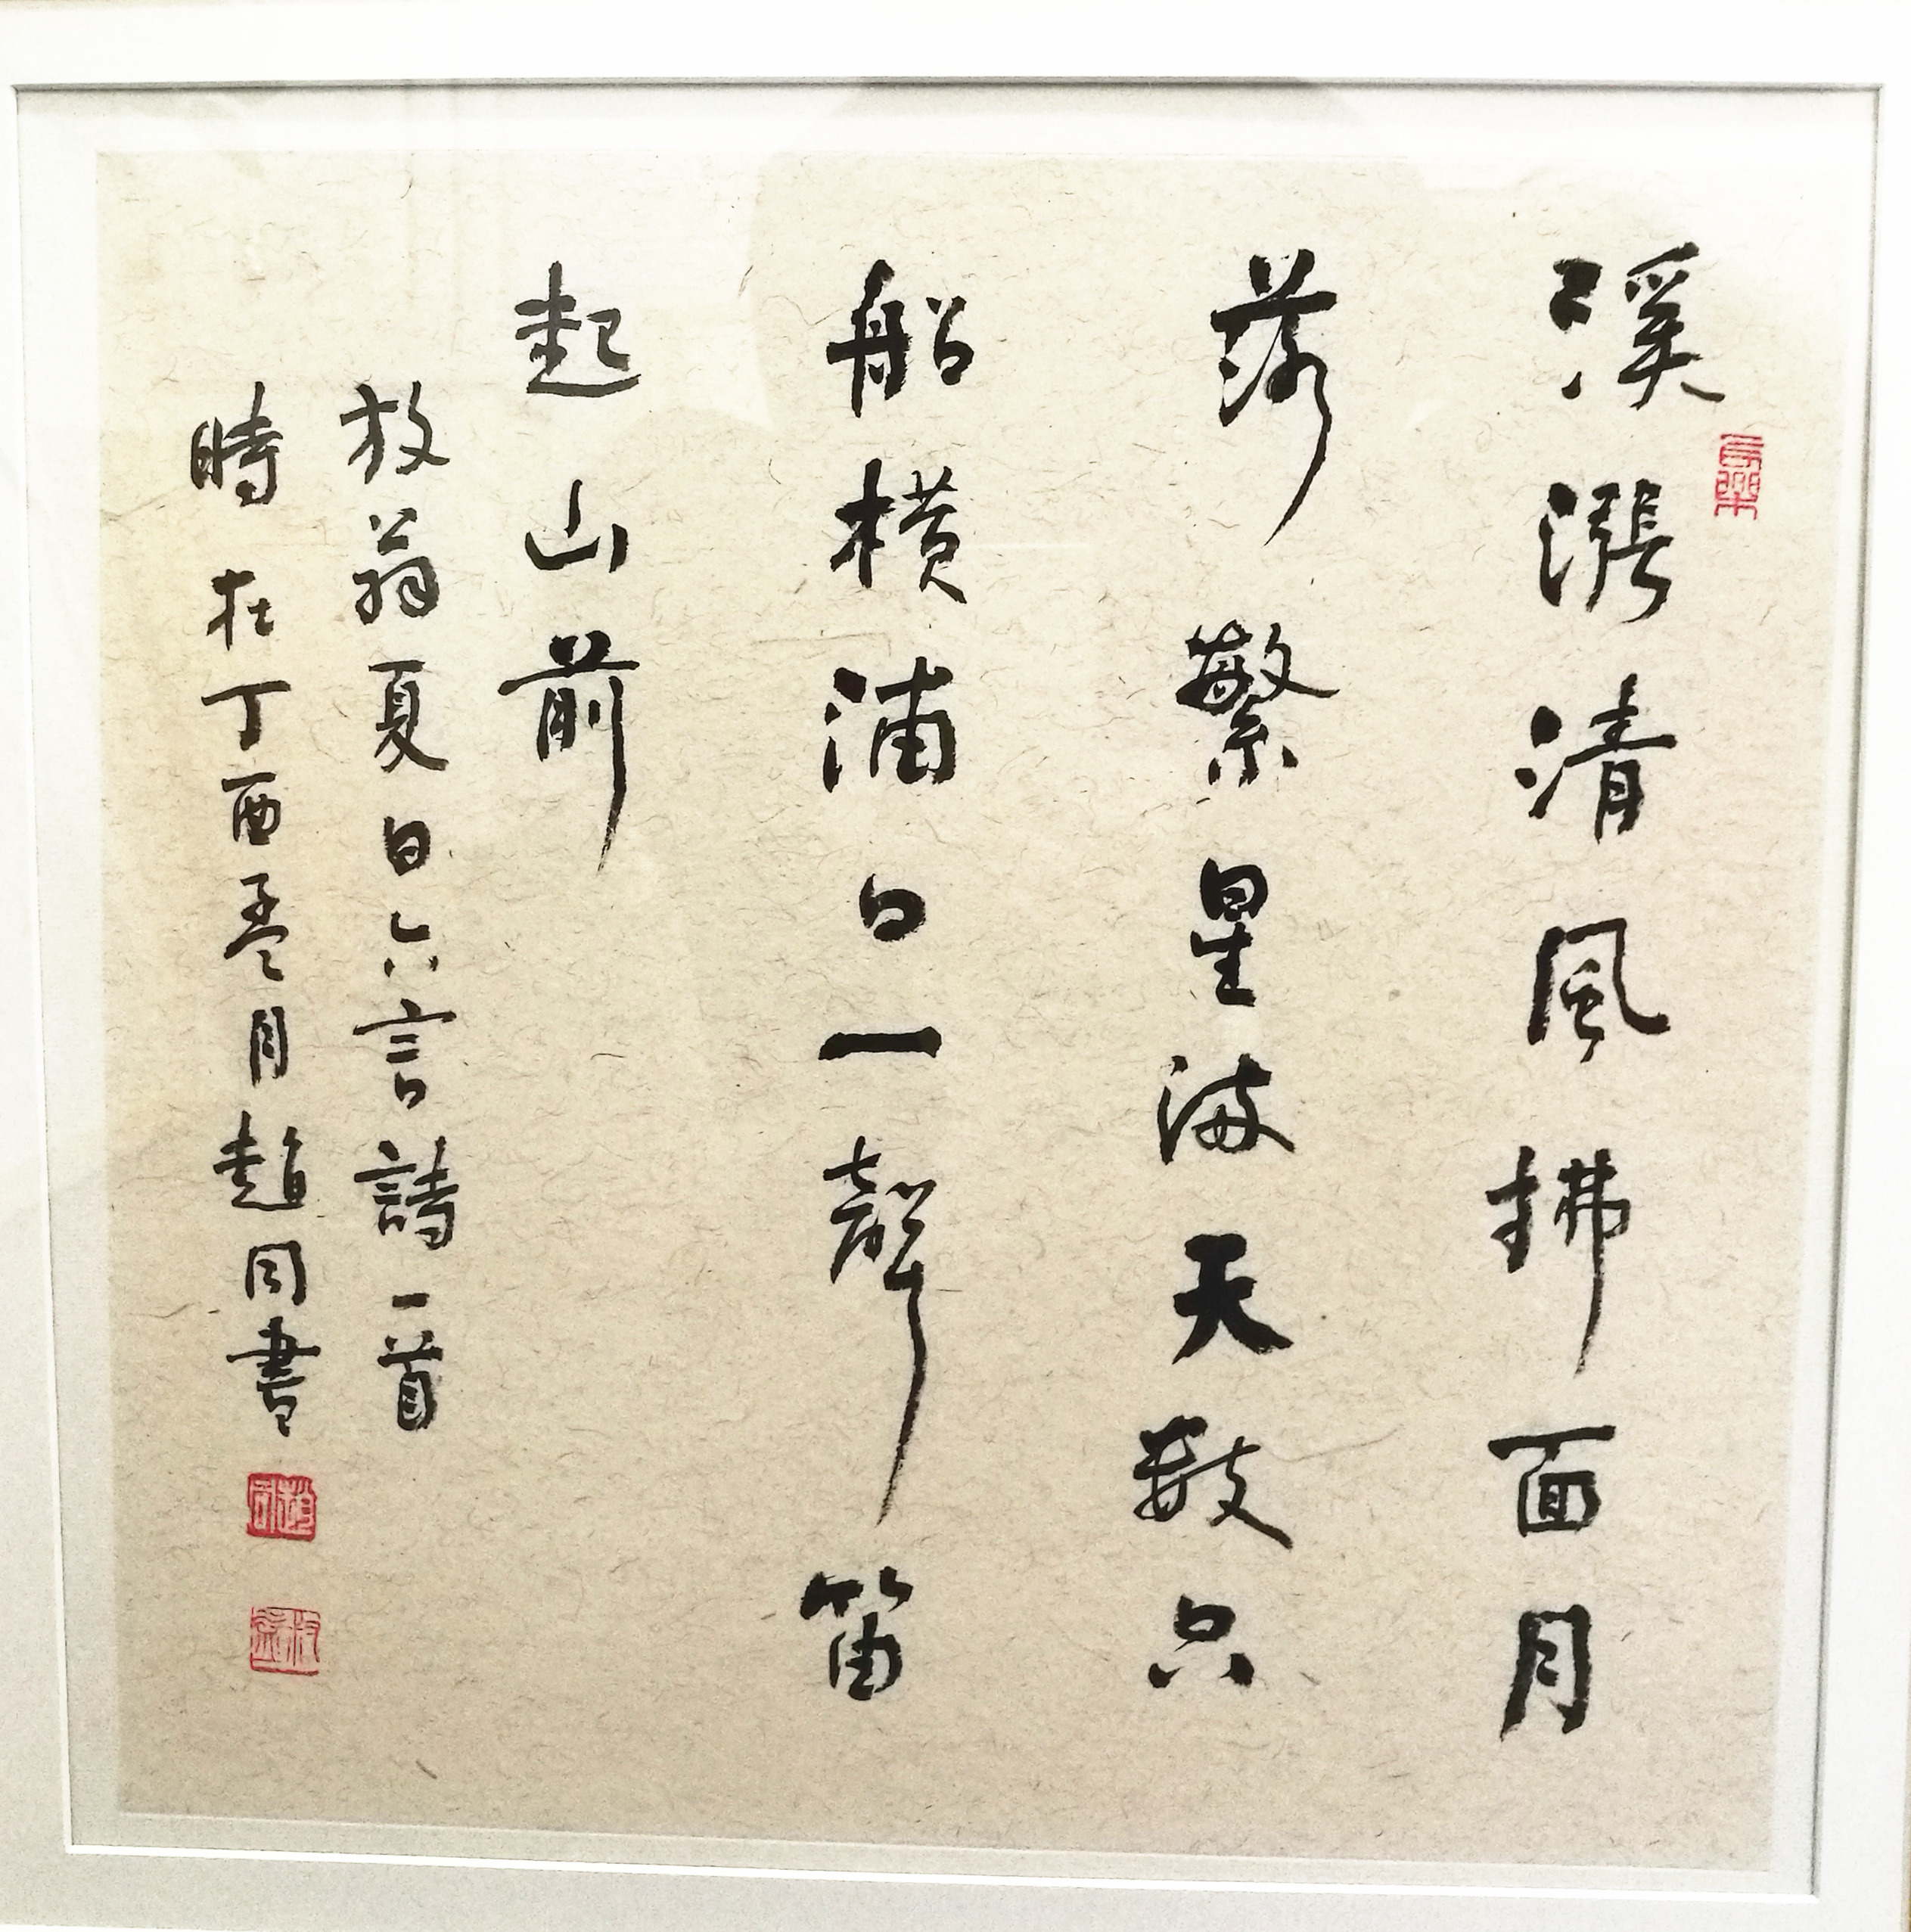 溪漲清風拂面月
落繁星滿天數只
船橫浦口一聲笛
起山前
放翁夏日六言詩一首
時在丁酉孟月趙同書